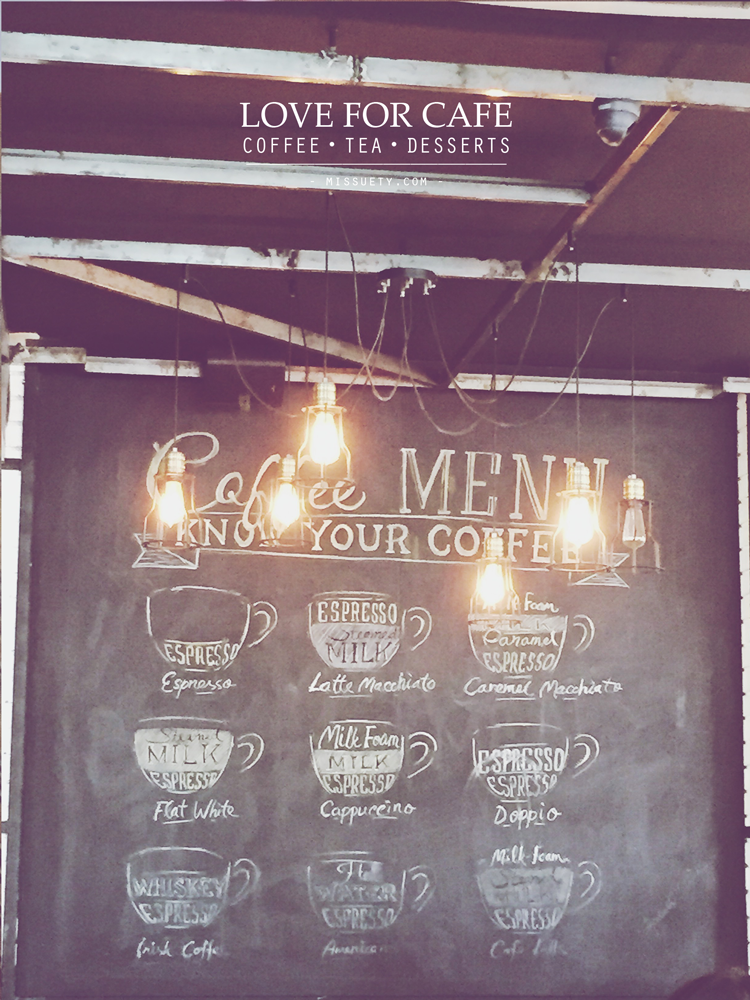 LOVE FOR CAFE
COFFEE • TEA • DESSERTS
- MISSUETY.COM -
Coffee MENU
KNOW YOUR COFFEE
ESPRESSO
Espresso
ESPRESSO
Steamed
MILK
Latte Macchiato
Milk Foam
Caramel
ESPRESSO
Caramel Macchiato
Steamed
MILK
ESPRESSO
Flat White
Milk Foam
MILK
ESPRESSO
Cappuccino
ESPRESSO
ESPRESSO
Doppio
WHISKEY
ESPRESSO
Irish Coffee
WATER
ESPRESSO
Americano
Milk Foam
ESPRESSO